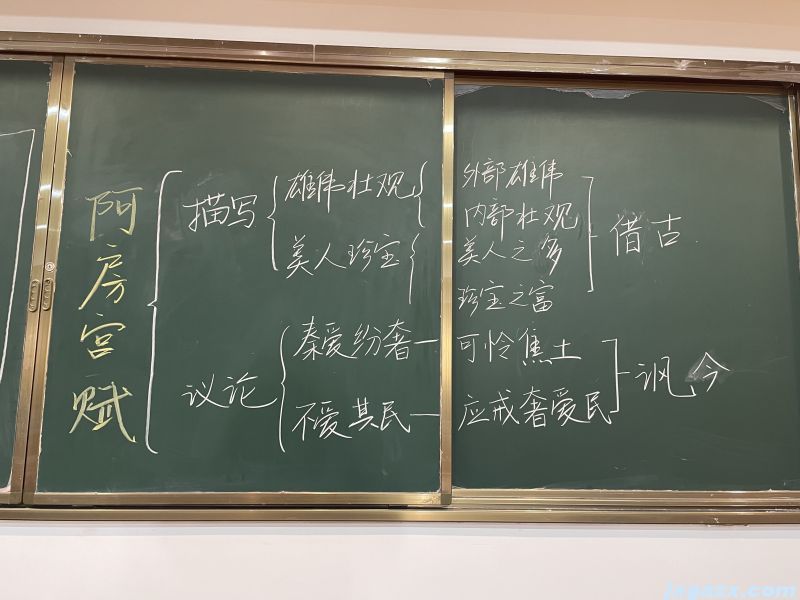 阿房宫赋
描写
雄伟壮观
外部雄伟
内部壮观
美人珍宝
美人之多
珍宝之富
借古
议论
秦爱纷奢
可怜焦土
不爱其民
应戒奢爱民
讽今